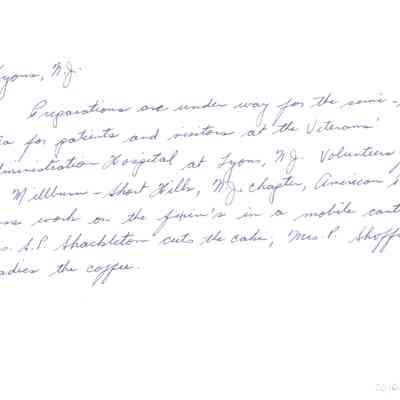 Lyons, N.J.
Preparations are under way for the semi-
for patients and visitors at the Veterans'
dministration Hospital at Lyons, N.J. Volunteers
Millburn - Short Hills, N.J. chapter, American
work on the fixin's in a mobile cant
s. A.P. Shackleton cuts the cake; Mrs. P. Shoff
adies the coffee.
2010